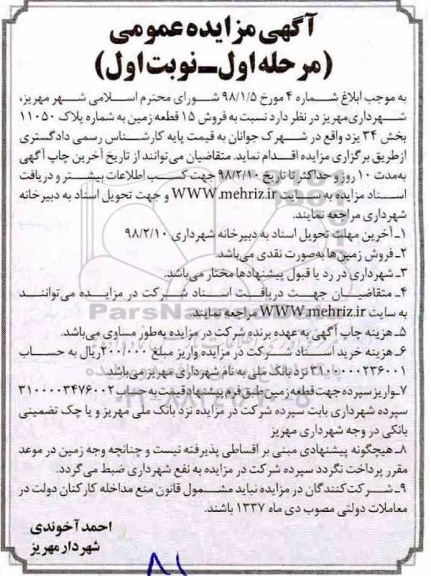 آگهی مزایده عمومی
(مرحله اول_نوبت اول)
به موجب ابلاغ شماره ۴ مورخ ۹۸/۱/۵ شورای محترم اسلامی شهر مهریز،
شهرداری‌مهریز در نظر دارد نسبت به فروش ۱۵ قطعه زمین به شماره پلاک ۱۱۰۵۰
بخش ۳۴ یزد واقع در شهرک جوانان به قیمت پایه کارشناس رسمی دادگستری
ازطریق برگزاری مزایده اقدام نماید. متقاضیان می‌توانند از تاریخ آخرین چاپ آگهی
به‌مدت ۱۰ روز و حداکثر تا تاریخ ۹۸/۲/۱۰ جهت کسب اطلاعات بیشتر و دریافت
اسناد مزایده به سایت WWW.mehriz.ir و جهت تحویل اسناد به دبیرخانه
شهرداری مراجعه نمایند.
۱_آخرین مهلت تحویل اسناد به دبیرخانه شهرداری ۹۸/۲/۱۰
۲_فروش زمین‌ها به‌صورت نقدی می‌باشد.
۳_شهرداری در رد یا قبول پیشنهادها مختار می‌باشد.
۴_ متقاضیان جهت دریافت اسناد شرکت در مزایده می‌توانند
به سایت WWW.mehriz.ir مراجعه نمایند.
۵_هزینه چاپ آگهی به عهده برنده شرکت در مزایده به‌طور مساوی می‌باشد.
۶_هزینه خرید اسناد شرکت در مزایده واریز مبلغ ۲۰۰/۰۰۰ریال به حساب
۳۱۰۰۰۰۰۲۳۶۰۰۱ نزد بانک ملی به نام شهرداری مهریز می‌باشد.
۷_واریز سپرده جهت قطعه زمین طبق فرم پیشنهاد قیمت به حساب ۳۱۰۰۰۰۳۴۷۶۰۰۲
سپرده شهرداری بابت سپرده شرکت در مزایده نزد بانک ملی مهریز و یا چک تضمینی
بانکی در وجه شهرداری مهریز
۸_هیچگونه پیشنهادی مبنی بر اقساطی پذیرفته نیست و چنانچه وجه زمین در موعد
مقرر پرداخت نگردد سپرده شرکت در مزایده به نفع شهرداری ضبط می‌گردد.
۹_ شرکت‌کنندگان در مزایده نباید مشمول قانون منع مداخله کارکنان دولت در
معاملات دولتی مصوب دی ماه ۱۳۳۷ باشند.
احمد آخوندی
شهردار مهریز
۸۱